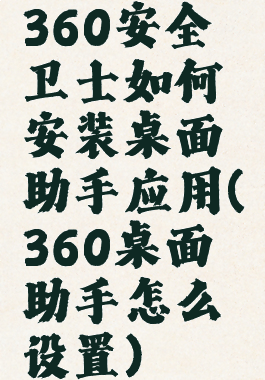 360安全
卫士如何
安装桌面
助手应用(
360桌面
助手怎么
设置)